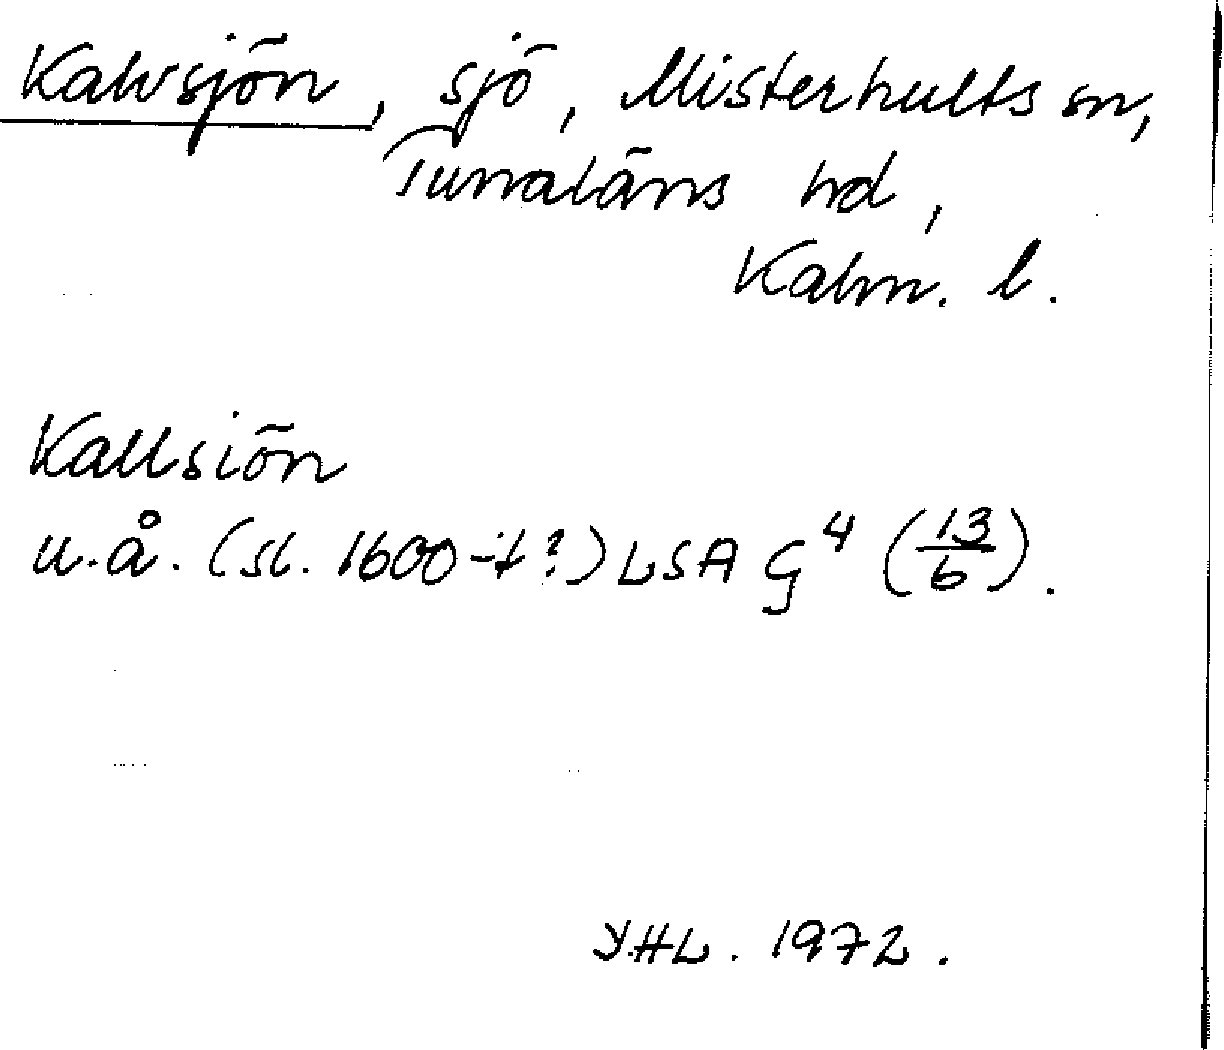 Kalvsjön, sjö, Misterhults sn,
Tunaläns hd,
Kalm. l.
Kallsiön
u.å. (sl. 1600-t?) LSA G⁴ (13/6).
Y.HL. 1972.